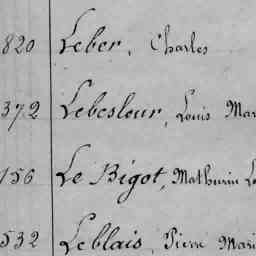 820 Leber, Charles
372 Lebesleur, Louis Mar
156 Le Bigot, Mathurin Lo
532 Leblais, Pierre Mari